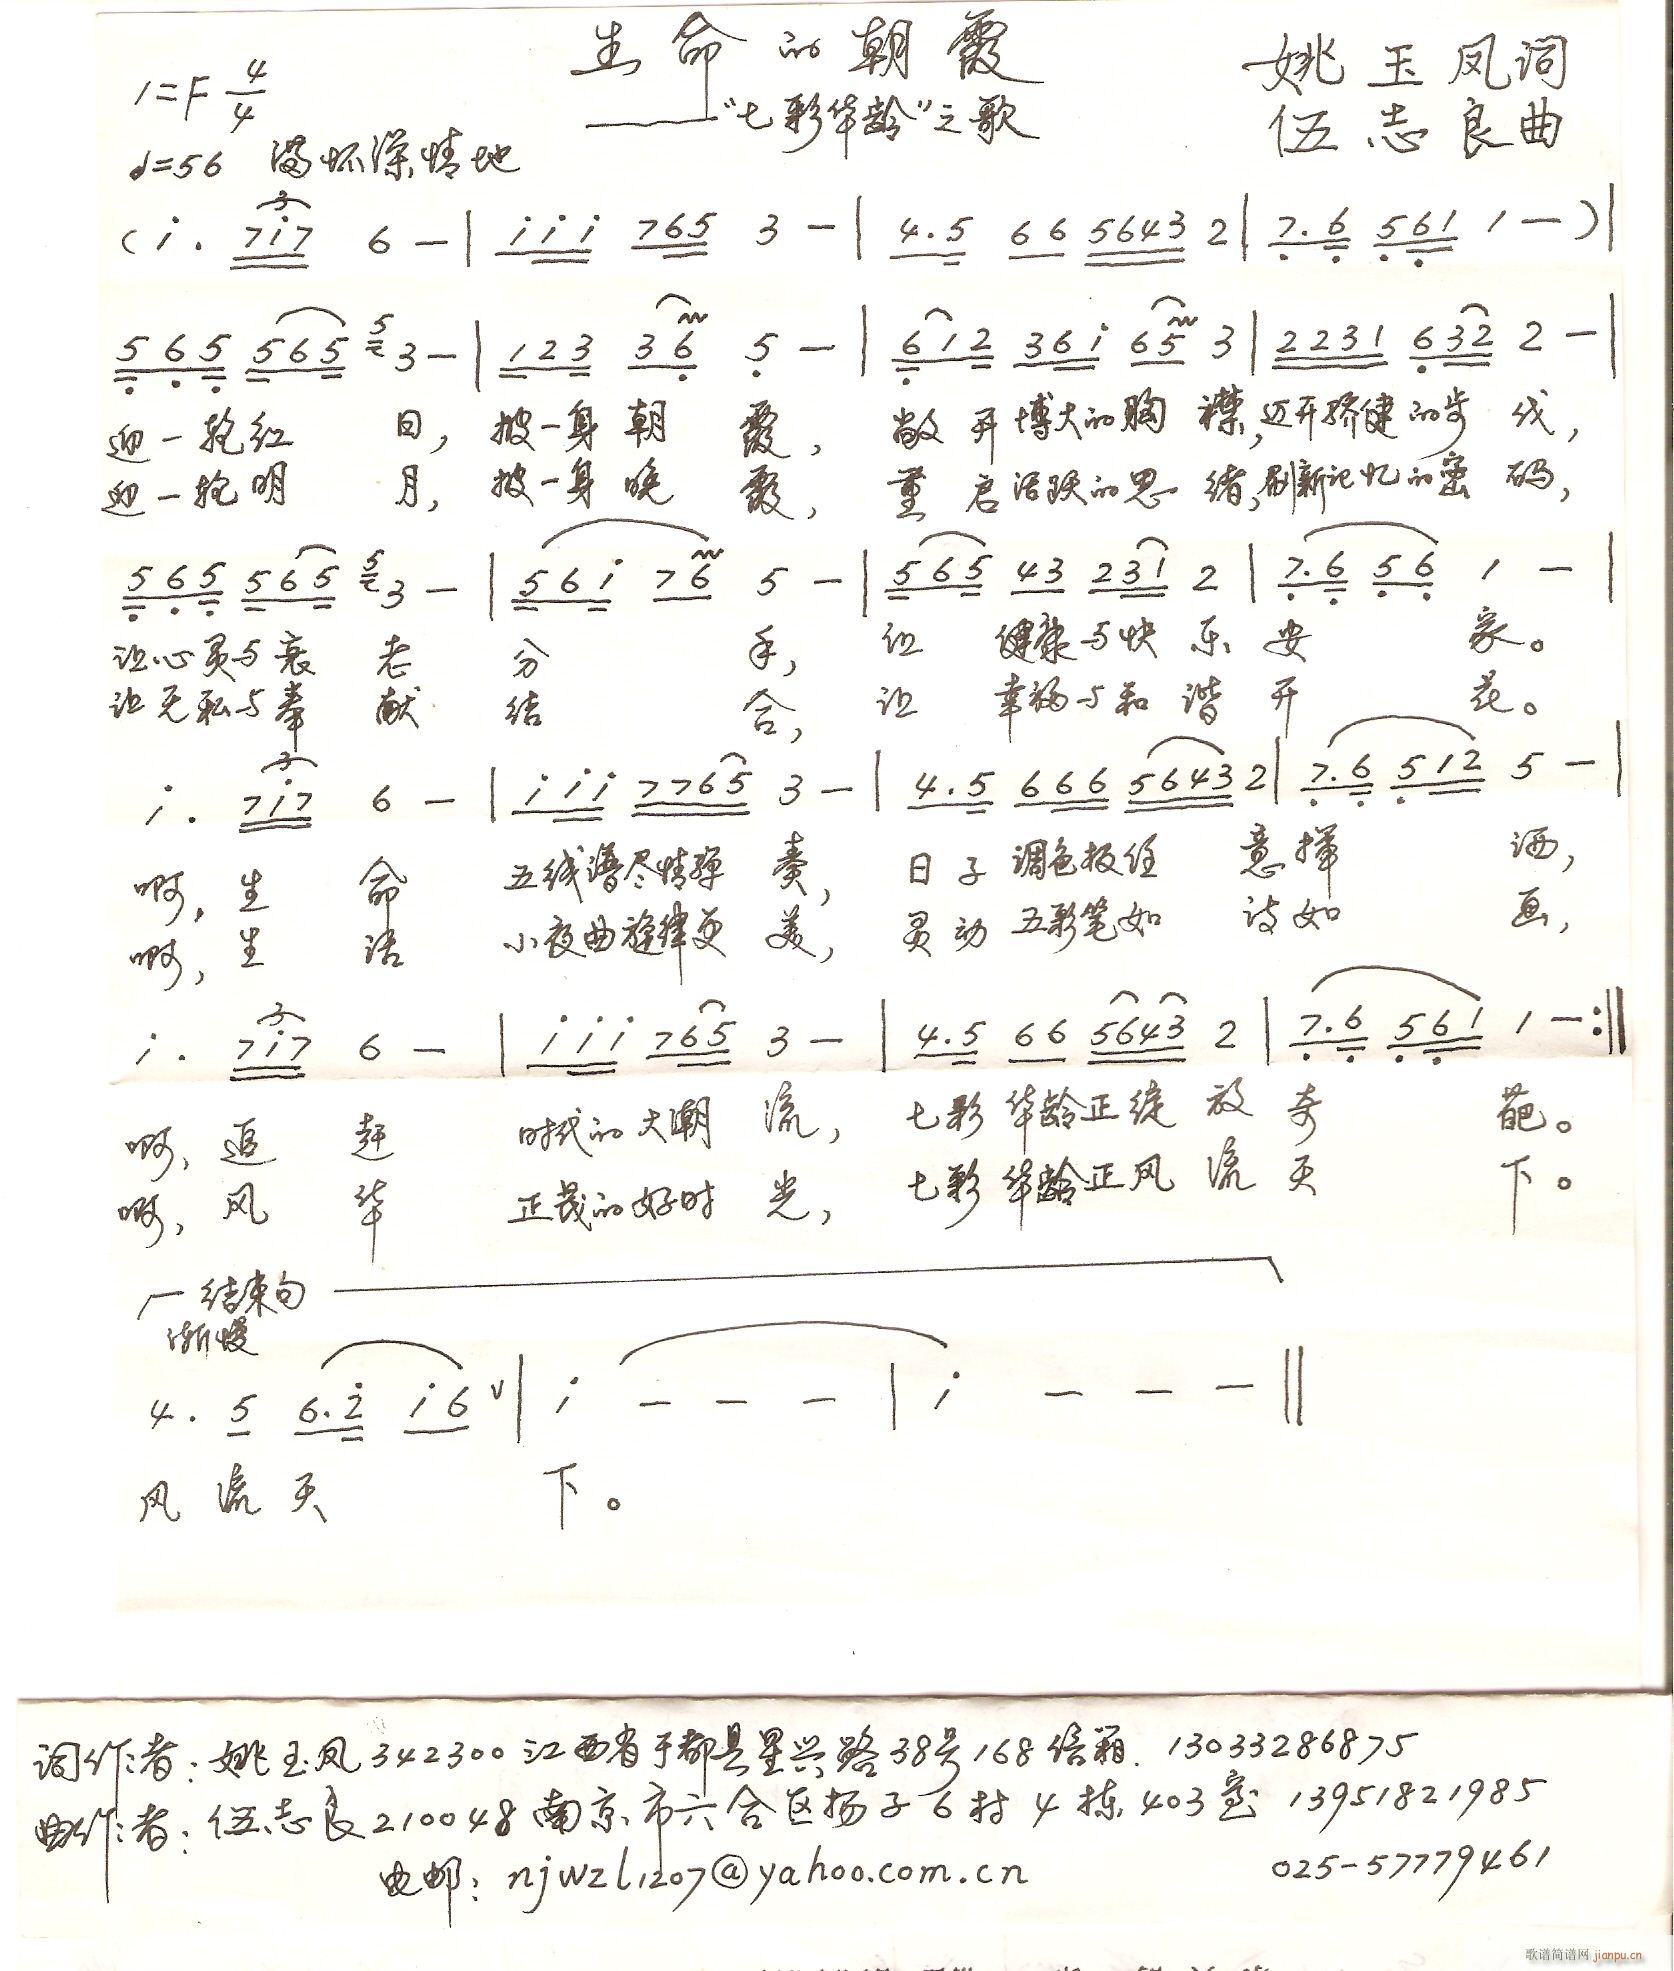 生命的朝霞
——“七彩华龄”之歌
姚玉凤词
伍志良曲
1=F 4/4
♩=56 满怀深情地
(i. 7i7 6 - | i i i 765 3 - | 4.5 66 5643 2 | 7.6 561 1 - )|
565 565 3 - | 123 36 5 - | 612 36i 65 3 | 2231 632 2 - |
迎一轮红日，披一身朝霞，敞开博大的胸襟，迈开矫健的步伐，
迎一轮明月，披一身晚霞，重启活跃的思绪，刷新记忆的密码，
565 565 3 - | 56i 76 5 - | 565 43 231 2 | 7.6 56 1 - |
让心灵与衰老分手，让健康与快乐安家。
让无私与奉献结合，让幸福与和谐开花。
i. 7i7 6 - | i i i 7765 3 - | 4.5 666 5643 2 | 7.6 512 5 - |
啊，生命五线谱尽情弹奏，日子调色板任意挥洒，
啊，生活小夜曲旋律更美，灵动五彩笔如诗如画，
i. 7i7 6 - | i i i 765 3 - | 4.5 66 5643 2 | 7.6 561 1 - :‖
啊，追赶时代的大潮流，七彩华龄正绽放奇葩。
啊，风华正茂的好时光，七彩华龄正风流天下。
结束句
渐慢
4. 5 6.2 i6 ∨ | i - - - | i - - - ‖
风流天下。
词作者：姚玉凤 342300 江西省于都县里兴路38号168信箱. 13033286875
曲作者：伍志良 210048 南京市六合区扬子6村4栋403室 13951821985
电邮：njwzl1207@yahoo.com.cn 025-57779461
歌谱简谱网 jianpu.cn